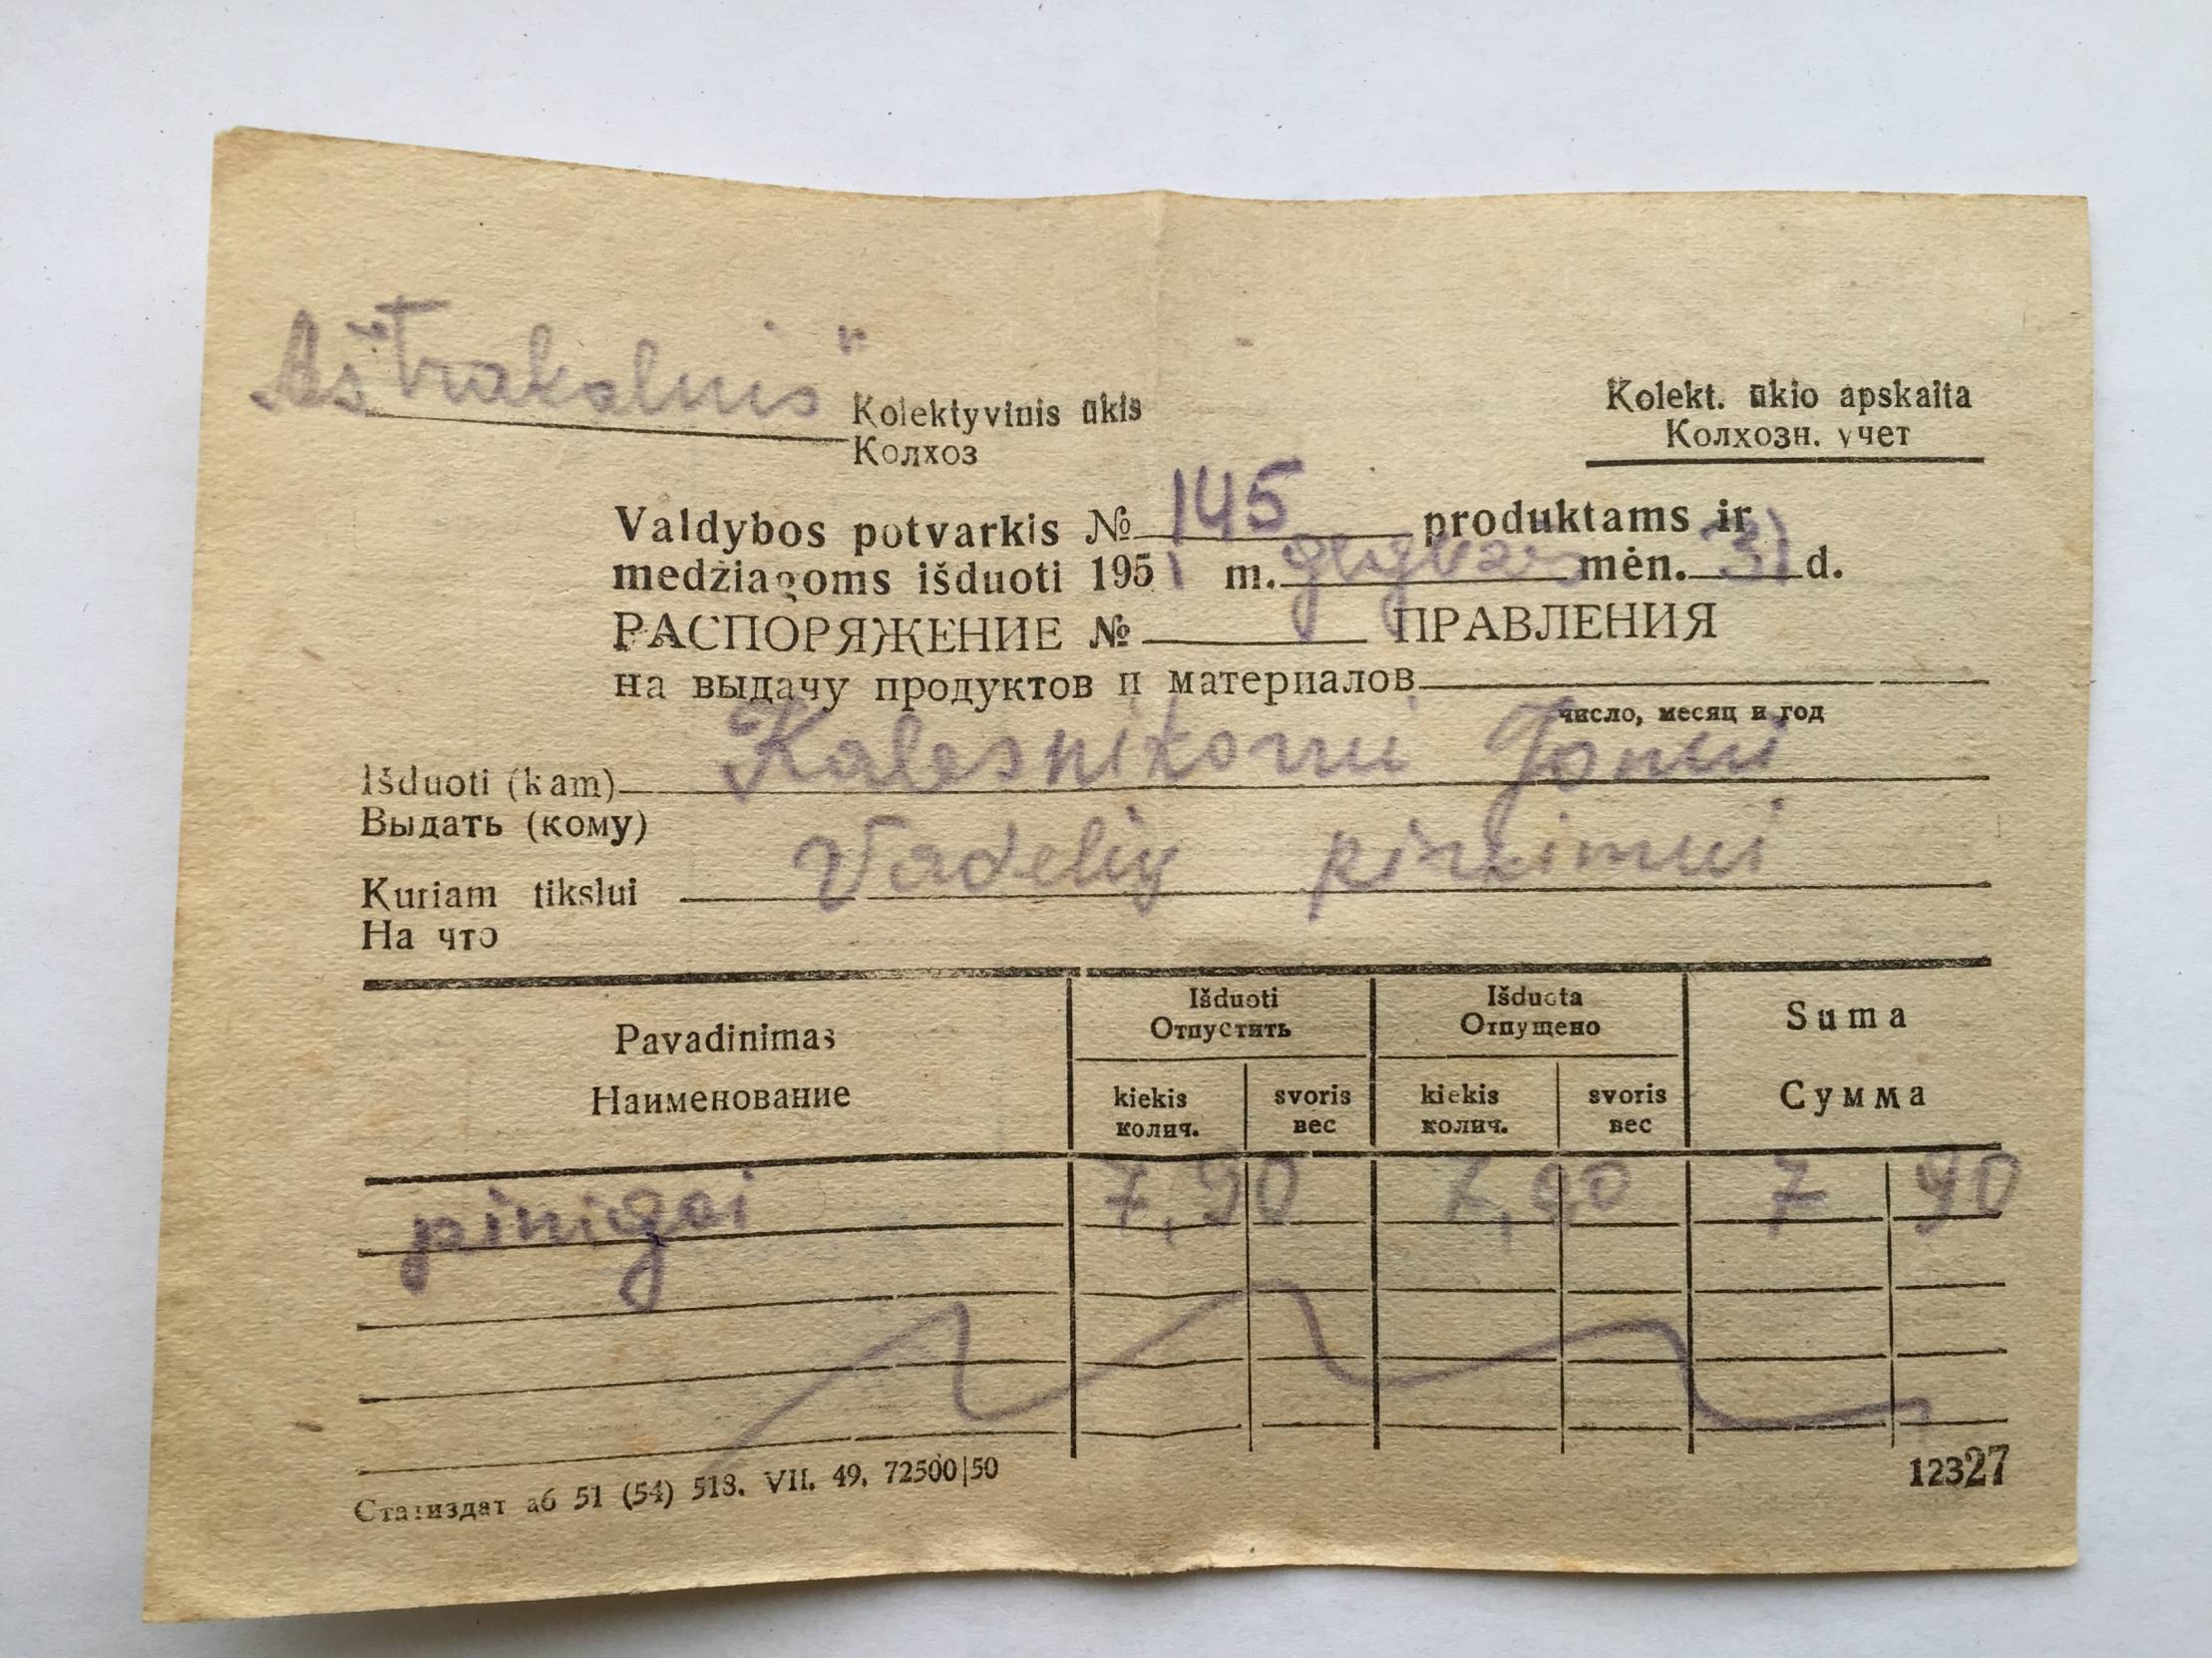 „Aštrakalnis"
Kolektyvinis ūkis
Колхоз
Kolekt. ūkio apskaita
Колхозн. учет
Valdybos potvarkis № 145 produktams ir
medžiagoms išduoti 1951 m. gegužės mėn. 31 d.
РАСПОРЯЖЕНИЕ № ПРАВЛЕНИЯ
на выдачу продуктов и материалов
число, месяц и год
Išduoti (kam) Kalesnikomui Jonui
Выдать (кому)
Kuriam tikslui Vadelių pirkimui
На что
Pavadinimas
Наименование
Išduoti
Отпустить
Išduota
Отпущено
Suma
Сумма
kiekis svoris kiekis svoris
колич. вес колич. вес
pinigai 7,90 7,90 7 90
Статиздат аб 51 (54) 518. VII. 49. 72500|50
12327